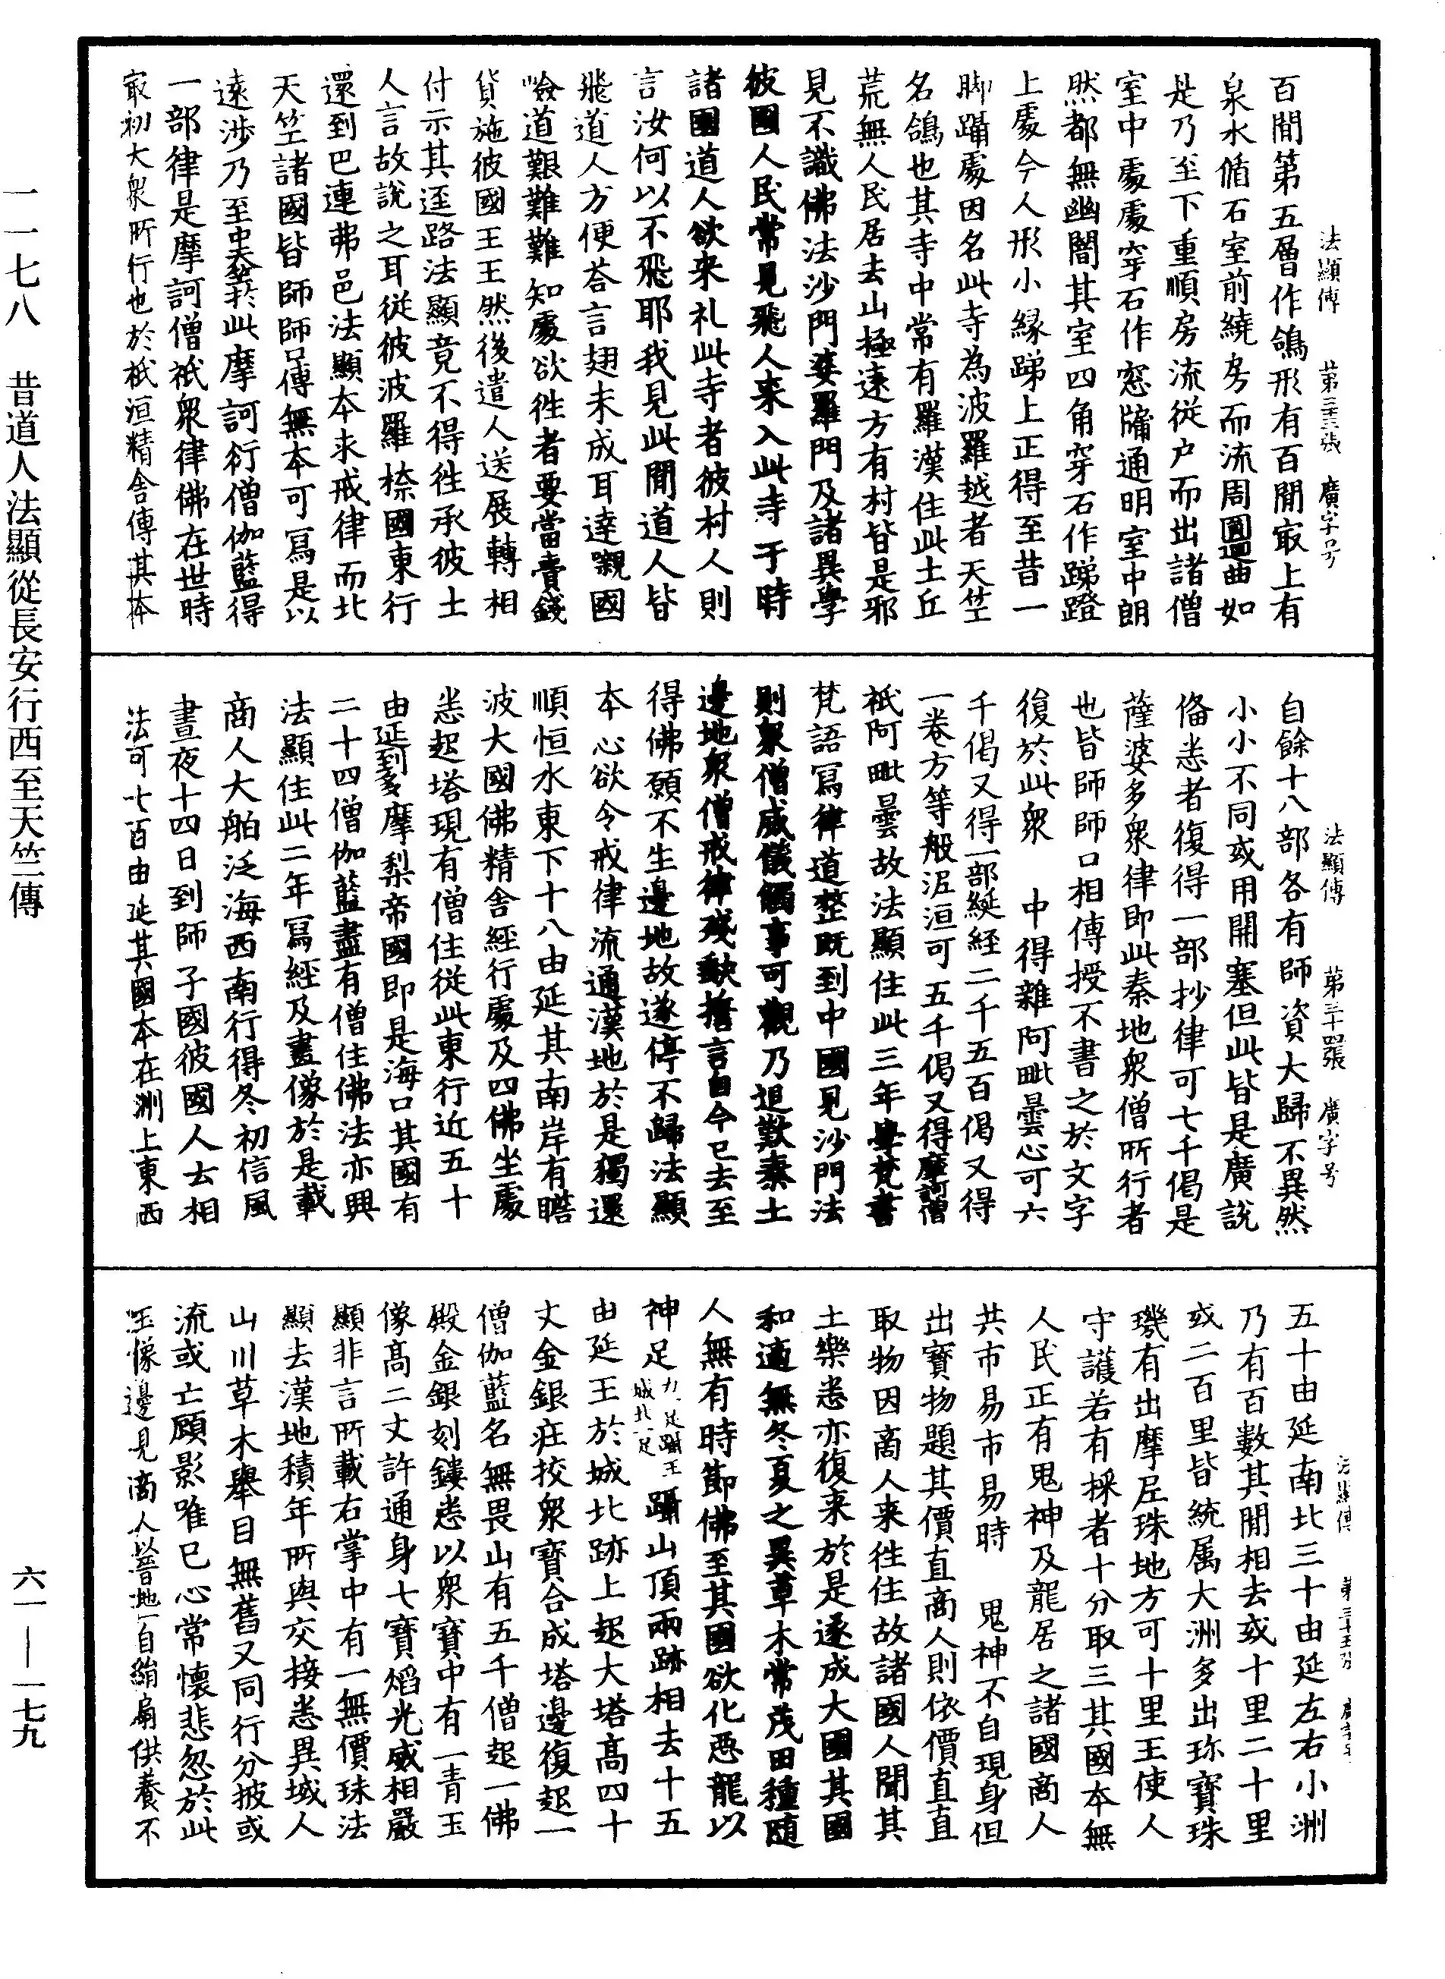 法顯傳 第三十三張 廣字号
百間第五層作鴿形有百間㝡上有
泉水循石室前繞房而流周圓迴曲如
是乃至下重順房流從户而出諸僧
室中處處穿石作窓牗通明室中朗
然都無幽闇其室四角穿石作蹄蹬
上處今人形小緣蹄上正得至昔一
脚躡處因名此寺為波羅越者天竺
名鴿也其寺中常有羅漢住此土丘
荒無人民居去山極遠方有村皆是邪
見不識佛法沙門婆羅門及諸異學
彼國人民常見飛人来入此寺于時
諸國道人欲来礼此寺者彼村人則
言汝何以不飛耶我見此間道人皆
飛道人方便荅言翅未成耳達嚫國
嶮道艱難難知處欲徃者要當賫錢
貨施彼國王王然後遣人送展轉相
付示其逕路法顯竟不得徃承彼土
人言故說之耳従彼波羅㮈國東行
還到巴連弗邑法顯本求戒律而北
天竺諸國皆師師口傳無本可寫是以
遠涉乃至中天竺扵此摩訶衍僧伽藍得
一部律是摩訶僧祇衆律佛在世時
㝡初大衆所行也於祇洹精舍傳其本
法顯傳 第三十四張 廣字号
自餘十八部各有師資大歸不異然
小小不同或用開塞但此皆是廣說
俻悉者復得一部抄律可七千偈是
薩婆多衆律即此秦地衆僧所行者
也皆師師口相傳授不書之於文字
復於此衆 中得雜阿毗曇心可六
千偈又得一部綖経二千五百偈又得
一卷方等般泥洹可五千偈又得摩訶僧
祇阿毗曇故法顯住此三年學梵書
梵語寫律道整既到中國見沙門法
則衆僧威儀觸事可觀乃追歎秦土
邊地衆僧戒律殘缺擔言自今已去至
得佛願不生邊地故遂停不歸法顯
本心欲令戒律流通漢地於是獨還
順恒水東下十八由延其南岸有瞻
波大國佛精舍經行處及四佛坐處
悉起塔現有僧住從此東行近五十
由延到多摩梨帝國即是海口其國有
二十四僧伽藍盡有僧住佛法亦興
法顯住此二年寫經及畫像於是載
商人大舶泛海西南行得冬初信風
晝夜十四日到師子國彼國人云相
法可七百由延其國本在洲上東西
法顯傳 第三十五張 廣字号
五十由延南北三十由延左右小洲
乃有百數其間相去或十里二十里
或二百里皆統属大洲多出珎寳珠
璣有出摩尼珠地方可十里王使人
守護若有採者十分取三其國本無
人民正有鬼神及龍居之諸國商人
共市易市易時 鬼神不自現身但
出寳物題其價直商人則依價直直
取物因商人来徃住故諸國人聞其
土樂悉亦復来於是遂成大國其國
和適無冬夏之異草木常茂田種随
人無有時節佛至其國欲化惡龍以
神足力一足躡王城北一足躡山頂兩跡相去十五
由延王於城北跡上起大塔髙四十
丈金銀莊挍衆寳合成塔邊復起一
僧伽藍名無畏山有五千僧起一佛
殿金銀刻鏤悉以衆寳中有一青玉
像髙二丈許通身七寳熖光威相嚴
顯非言所載右掌中有一無價珠法
顯去漢地積年所與交接悉異域人
山川草木舉目無舊又同行分披或
流或亡顧影唯已心常懷悲忽於此
玉像邊見商人以晉地一白絹扇供養不
一一七八 昔道人法顯從長安行西至天竺傳
六一——一七九